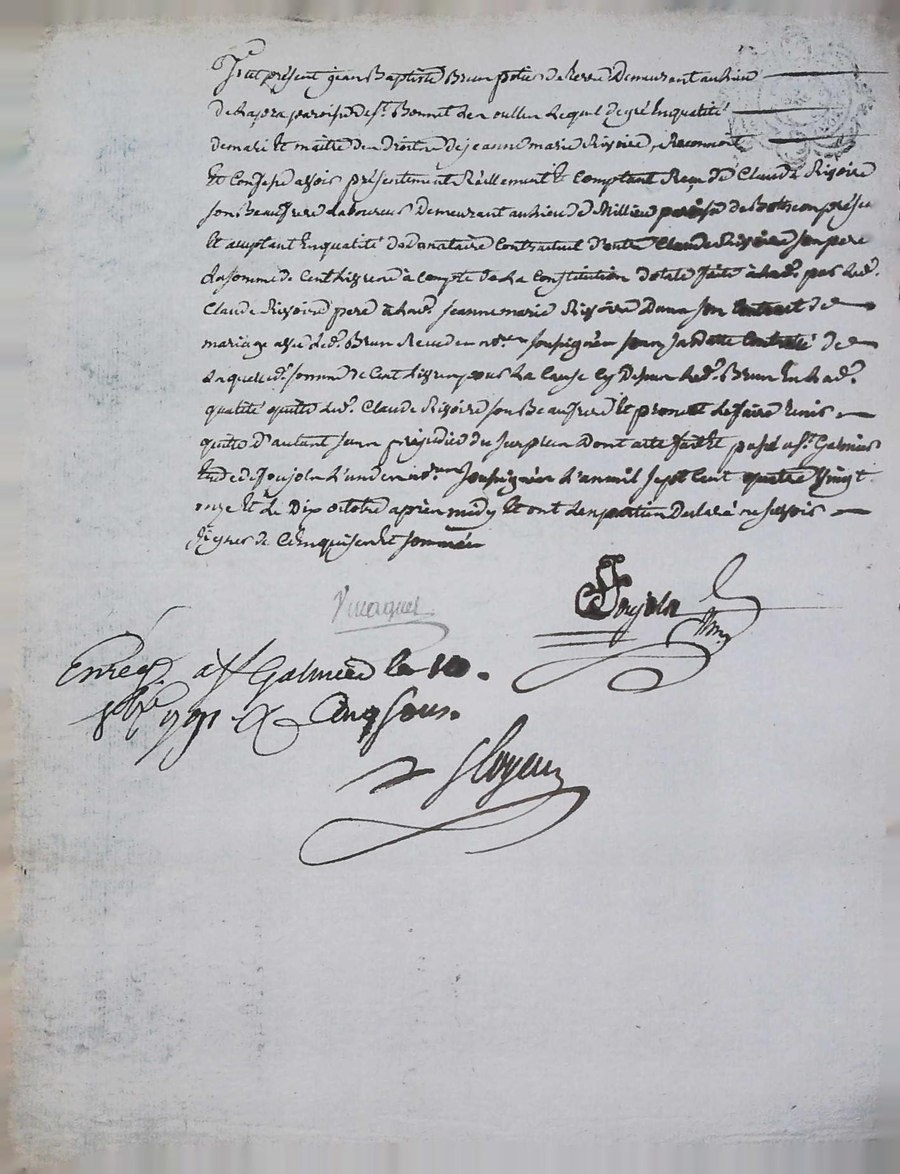 Fut présent jean Baptiste Brun potier de terre Demeurant au lieu
de Lajora paroisse de St. Bonnet Les oulles Lequel de gré Enqualité
de mari Et maitre des Droits de jeanne marie Rivoire, Reconnoit
Et Confesse avoir présentement Réellement Et Comptant Reçu De Claude Rivoire
son Beaufrere Laboureur Demeurant au lieu de Millieu paroisse de présent
Et acceptant Enqualité de Donataire Contractuel d'autre Claude Rivoire son pere
La somme de Cent Livres à Compte de La Constitution dotale faite à lad. par led.
Claude Rivoire pere à lad. jeanne marie Rivoire Dans son Contrat de
mariage avec led. Brun Reçu des nores. soussignés sous sa datte Contrôlé De
Laquelle somme de Cent Livres pour La Cause Cy Dessus led. Brun En lad.
qualité quitte led. Claude Rivoire son Beaufrere Et promet le faire tenir
quitte d'autant sans préjudice du surplus Dont acte fait Et passé a St. Galmier
Etude de Soujols L'un des nores. soussignés L'an mil sept Cent quatre vingt
onze Et Le Dix octobre après midy Et ont Les parties Declaré ne savoir
signer de Ce Enquises Et sommées
Soujols
Enreg. a St Galmier le 10.
8bre 1791 Cinq sous.